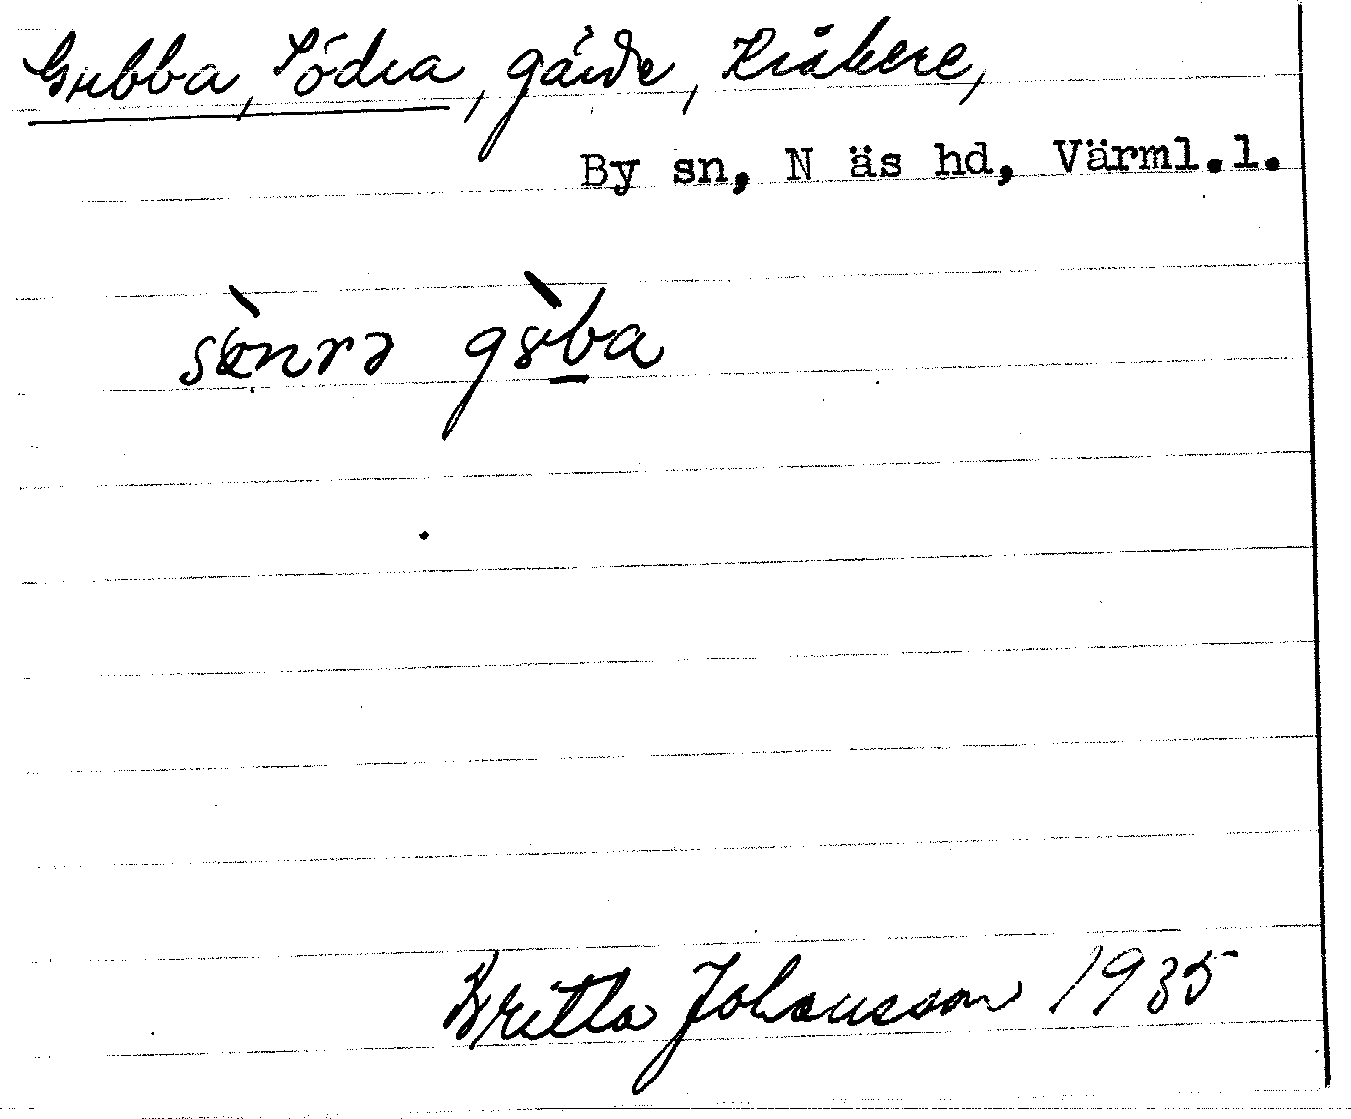 Gubba, Södra, gärde, Kråkere,
By sn, N äs hd, Värml.l.
sœ̀nrə gɤ̀b̲a
Britta Johansson 1935